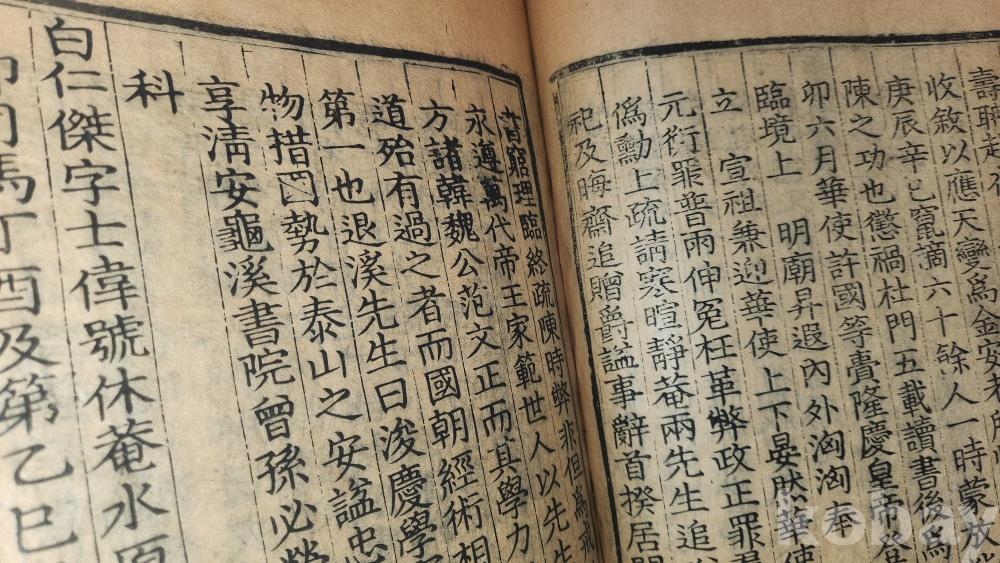 壽聘起
收敘以應天變爲金安老所
庚辰辛巳竄謫六十餘人一時蒙放
陳之功也懲禍杜門五載讀書後爲
卯六月華使許國等賫隆慶皇帝登
臨境上 明廟昇遐內外洶洶奉
立 宣祖兼迎華使上下晏然華使
元衍罪普雨伸冤枉革弊政正罪
僞勳上疏請寒暄靜菴兩先生追
祀及晦齋追贈爵諡事辭首揆居
昔窮理臨終疏陳時弊非但爲戒
永遵萬代帝王家範世人以先生
方諸韓魏公范文正而其學力
道殆有過之者而國朝經術相
第一也退溪先生曰浚慶學
物措國勢於泰山之安諡忠
享淸安龜溪書院曾孫必榮
科
白仁傑字士偉號休菴水原
卯司馬丁酉及第乙巳
kobay